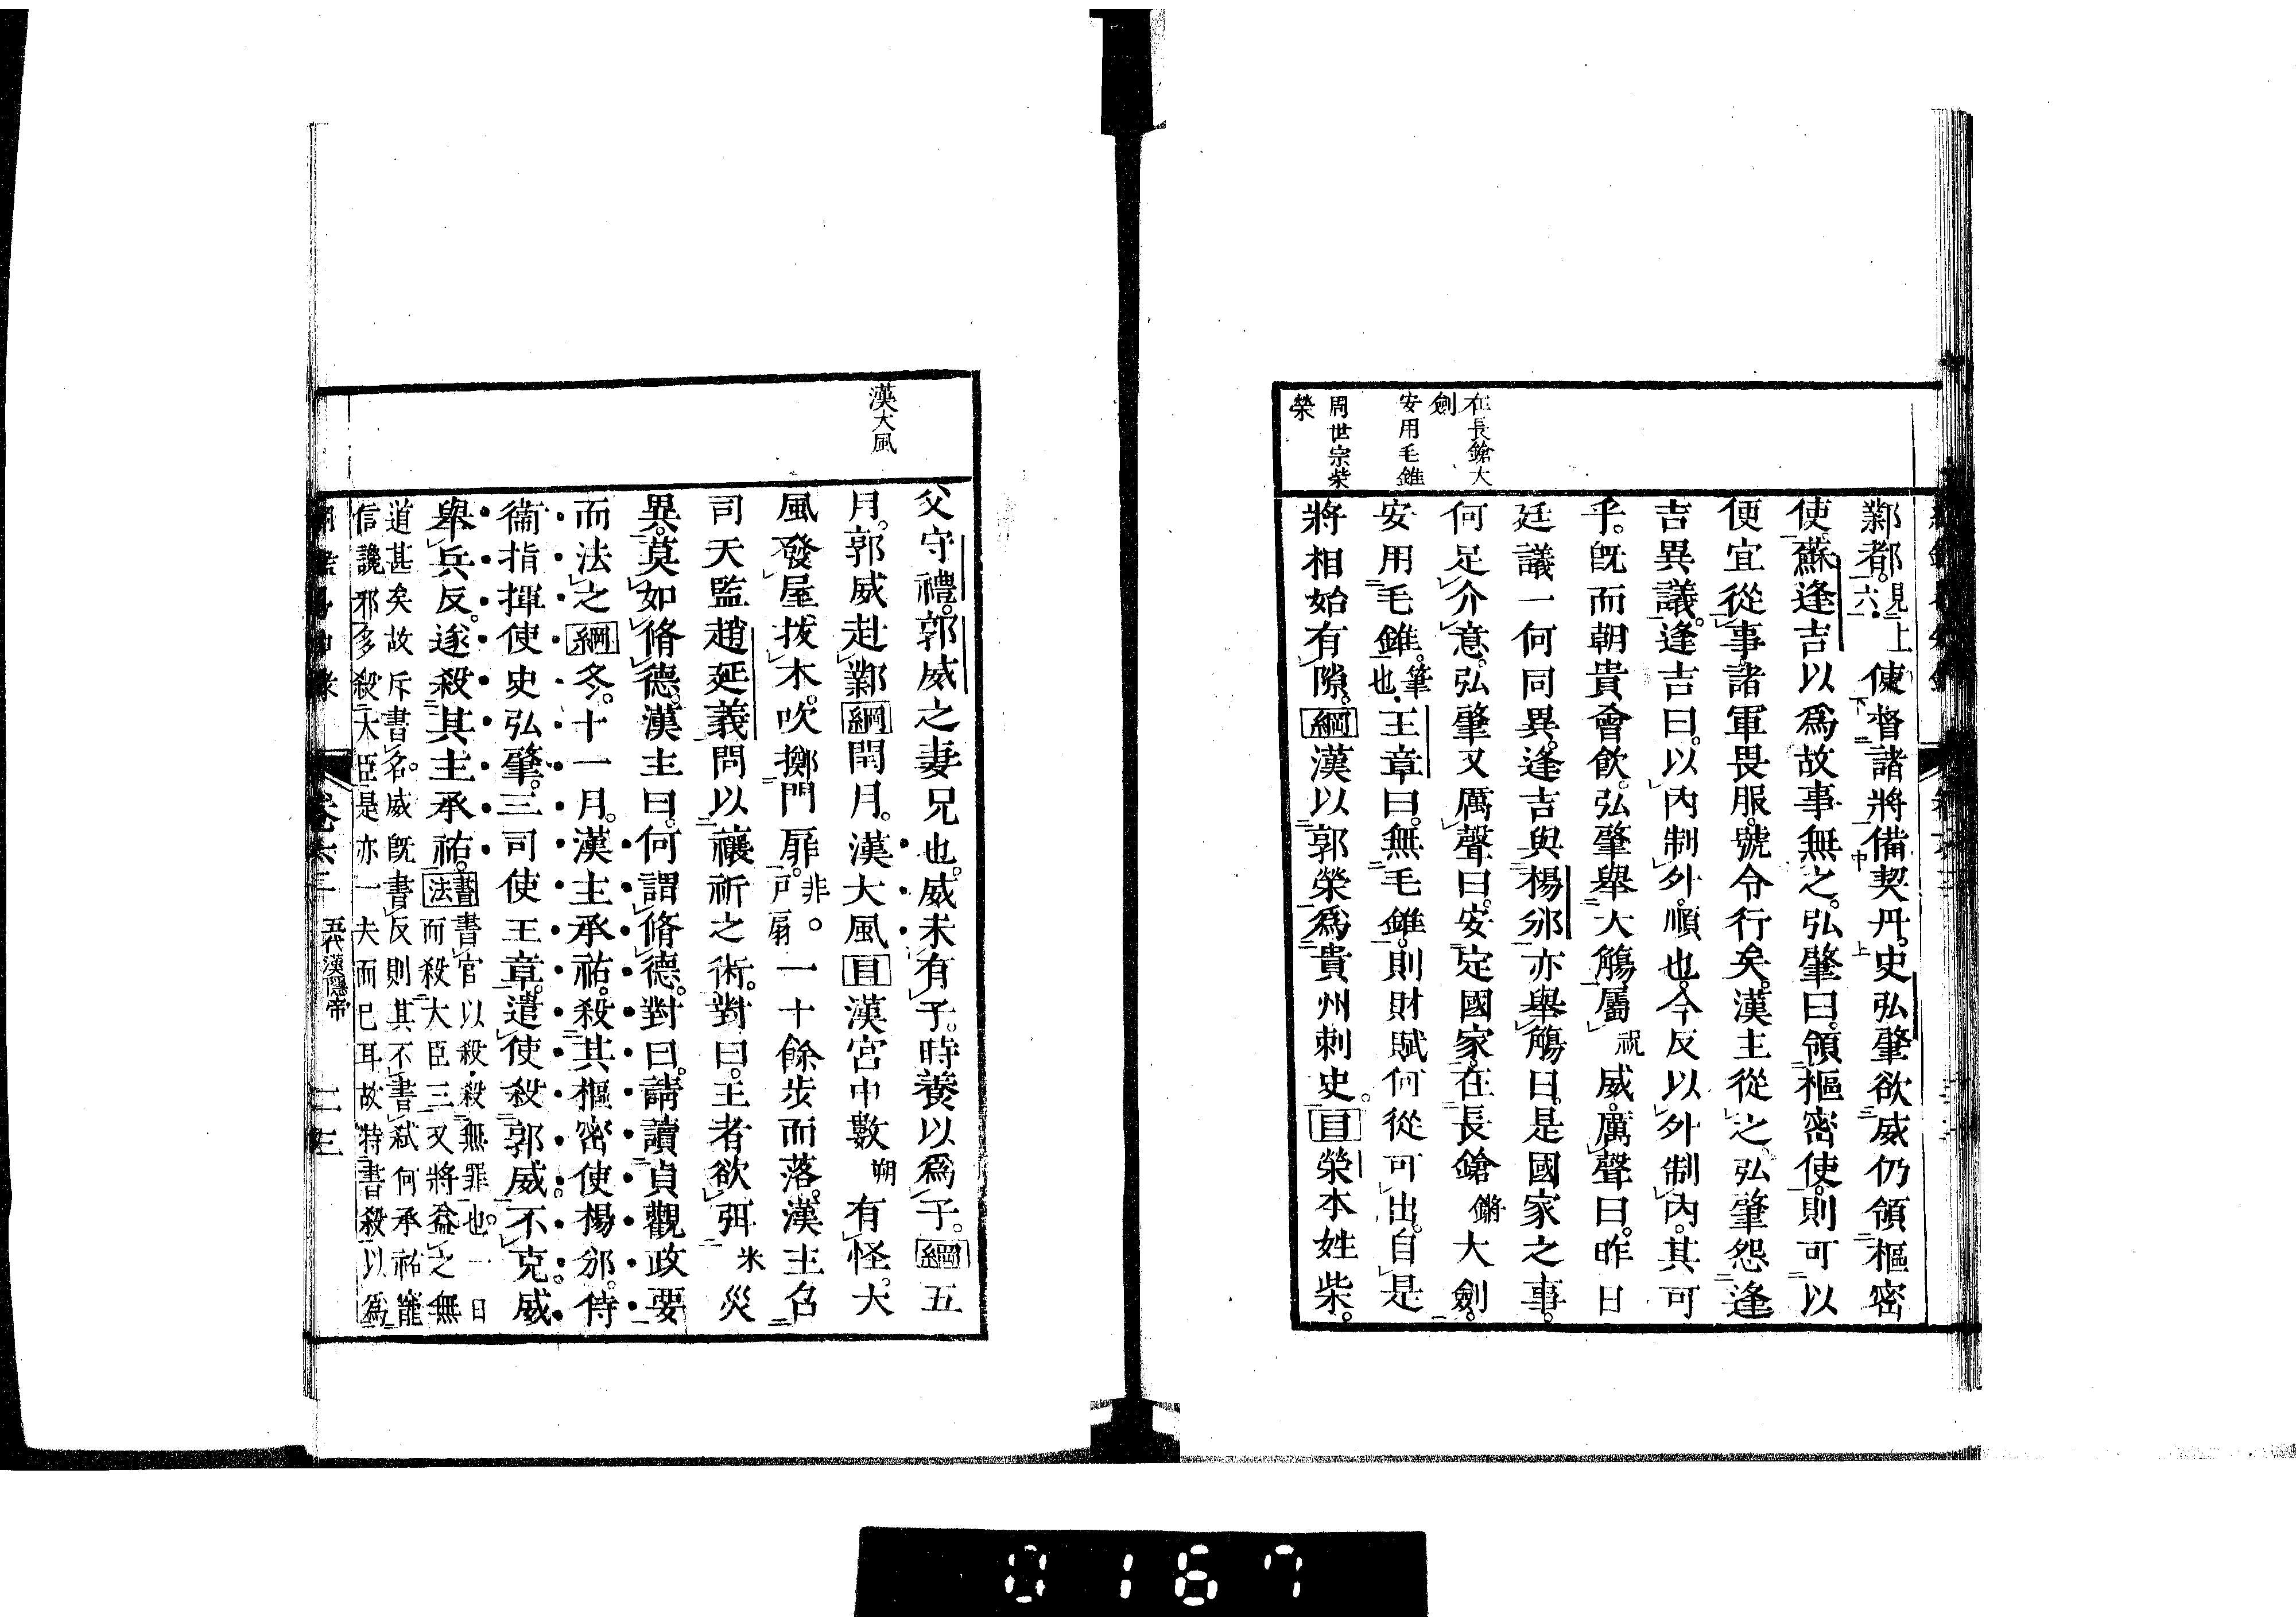 在長鎗大
劍
安用毛錐
周世宗柴
榮
鄴都。見上六使督諸將備契丹。史弘肇欲威仍領樞密
使。蘇逢吉以爲故事無之。弘肇曰。領樞密使。則可以
便宜從事。諸軍畏服。號令行矣。漢主從之。弘肇怨逢
吉異議。逢吉曰。以內制外。順也。今反以外制內。其可
乎。旣而朝貴會飲。弘肇舉大觴屬祝威。厲聲曰。昨日
廷議一何同異。逢吉與楊邠亦舉觴曰。是國家之事。
何足介意。弘肇又厲聲曰。安定國家。在長鎗鏘大劍。
安用毛錐。筆也王章曰。無毛錐。則財賦何從可出。自是
將相始有隙。綱漢以郭榮爲貴州刺史。目榮本姓柴。
漢大風
父守禮。郭威之妻兄也。威未有子。時養以爲子。綱五
月。郭威赴鄴綱閏月。漢大風目漢宮中數朔有怪。大
風發屋拔木。吹擲門扉。非。戶扇一十餘步而落。漢主召
司天監趙延義問以禳祈之術。對曰。王者欲弭米災
異。莫如脩德。漢主曰。何謂脩德。對曰。請讀貞觀政要
而法之綱冬。十一月。漢主承祐。殺其樞密使楊邠。侍
衞指揮使史弘肇。三司使王章。遣使殺郭威。不克。威
舉兵反。遂殺其主承祐。書法書官以殺。殺無罪也。一日
而殺大臣三又將益之無
道甚矣故斥書名。威旣書反則其不書弒何承祐寵
信讒邪多殺大臣是亦一夫而已耳故特書殺以爲
卷六三 五代漢隱帝 二三
0167